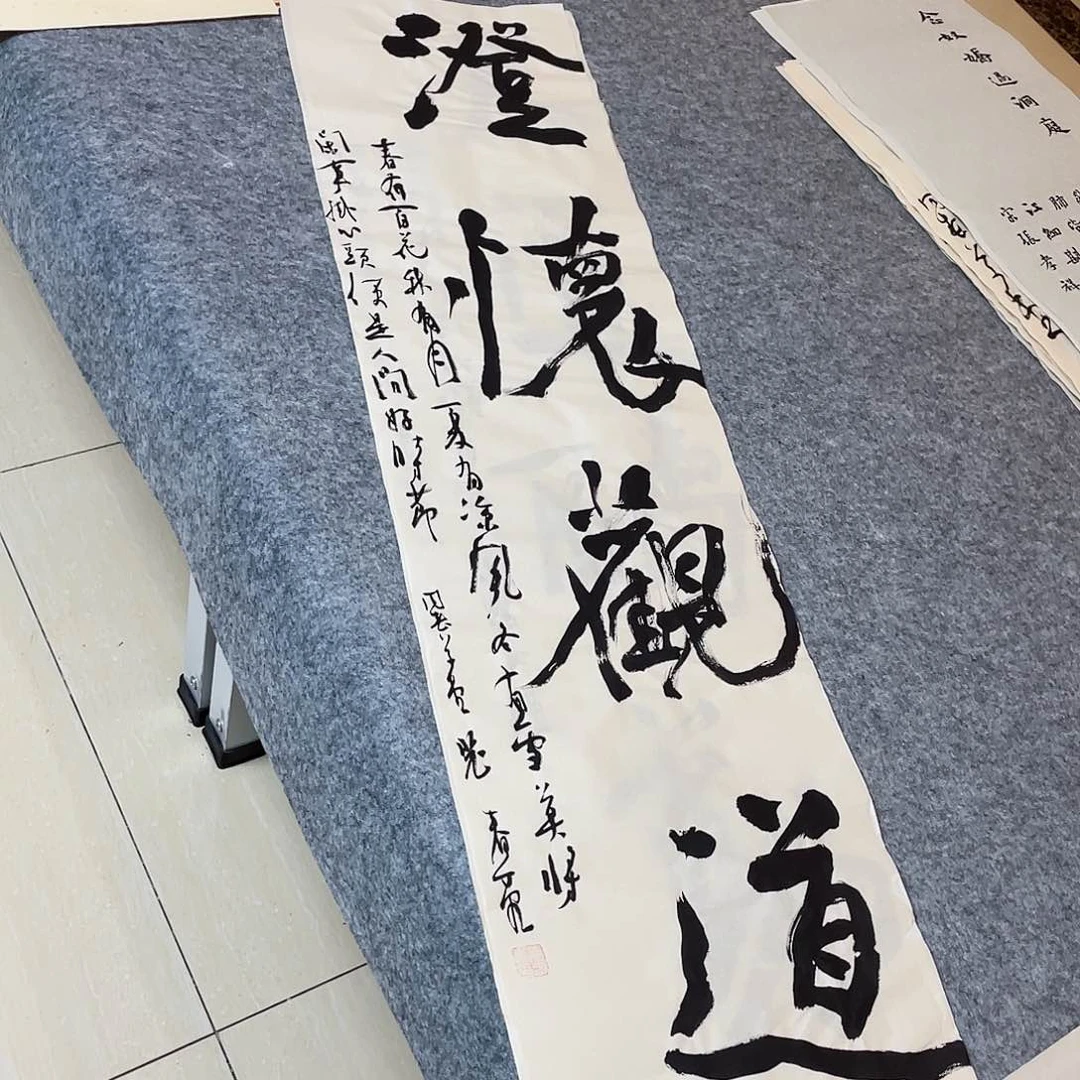 澄懷觀道
春有百花秋有月夏有涼風冬有雪莫將
閑事掛心頭便是人間好時節
念奴嬌過洞庭
宋張孝祥